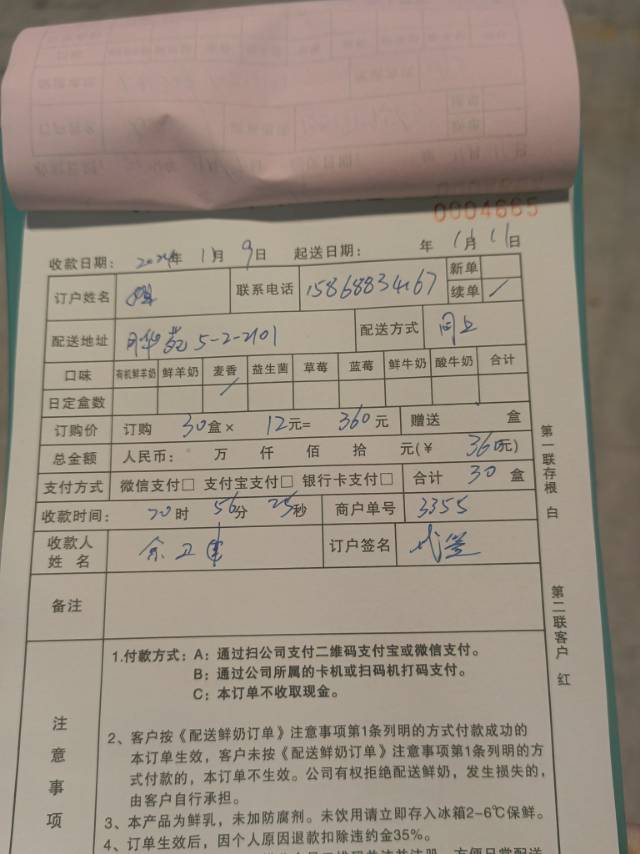 0004665
收款日期： 2024年 11月 9日 起送日期： 年 11月 11日
订户姓名 联系电话 15868834167 新单
续单 /
配送地址 5-2-2101 配送方式 同上
口味 有机鲜羊奶 鲜羊奶 麦香 益生菌 草莓 蓝莓 鲜牛奶 酸牛奶 合计
日定盒数 /
订购价 订购 30盒× 12元= 360元 赠送 盒
总金额 人民币： 万 仟 佰 拾 元(¥ 360元)
支付方式 微信支付□ 支付宝支付□ 银行卡支付□ 合计 30 盒
收款时间： 20时 56分 25秒 商户单号 3355
收款人
姓名 余卫 订户签名 代签
备注
第一联存根 白
第二联客户 红
注意事项
1.付款方式：A：通过扫公司支付二维码支付宝或微信支付。
B：通过公司所属的卡机或扫码机打码支付。
C：本订单不收取现金。
2、客户按《配送鲜奶订单》注意事项第1条列明的方式付款成功的
本订单生效，客户未按《配送鲜奶订单》注意事项第1条列明的方
式付款的，本订单不生效。公司有权拒绝配送鲜奶，发生损失的，
由客户自行承担。
3、本产品为鲜乳，未加防腐剂。未饮用请立即存入冰箱2-6℃保鲜。
4、订单生效后，因个人原因退款扣除违约金35%。